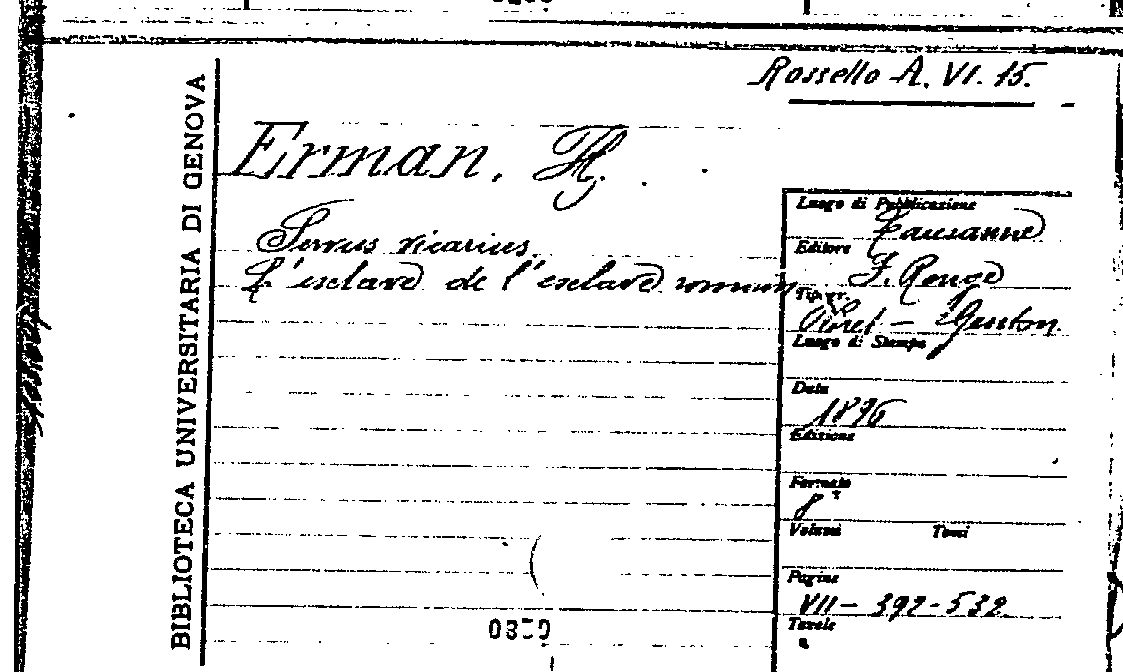 Rossello A. VI. 15.
BIBLIOTECA UNIVERSITARIA DI GENOVA
Erman, H.
Servus vicarius.
L'esclave de l'esclave romain
Luogo di Pubblicazione
Lausanne
Editore
F. Rouge
Tipogr.
Viret - Genton
Luogo di Stampa
Data
1896
Edizione
Formato
8°
Volumi Tomi
Pagine
VII - 392-532
Tavole